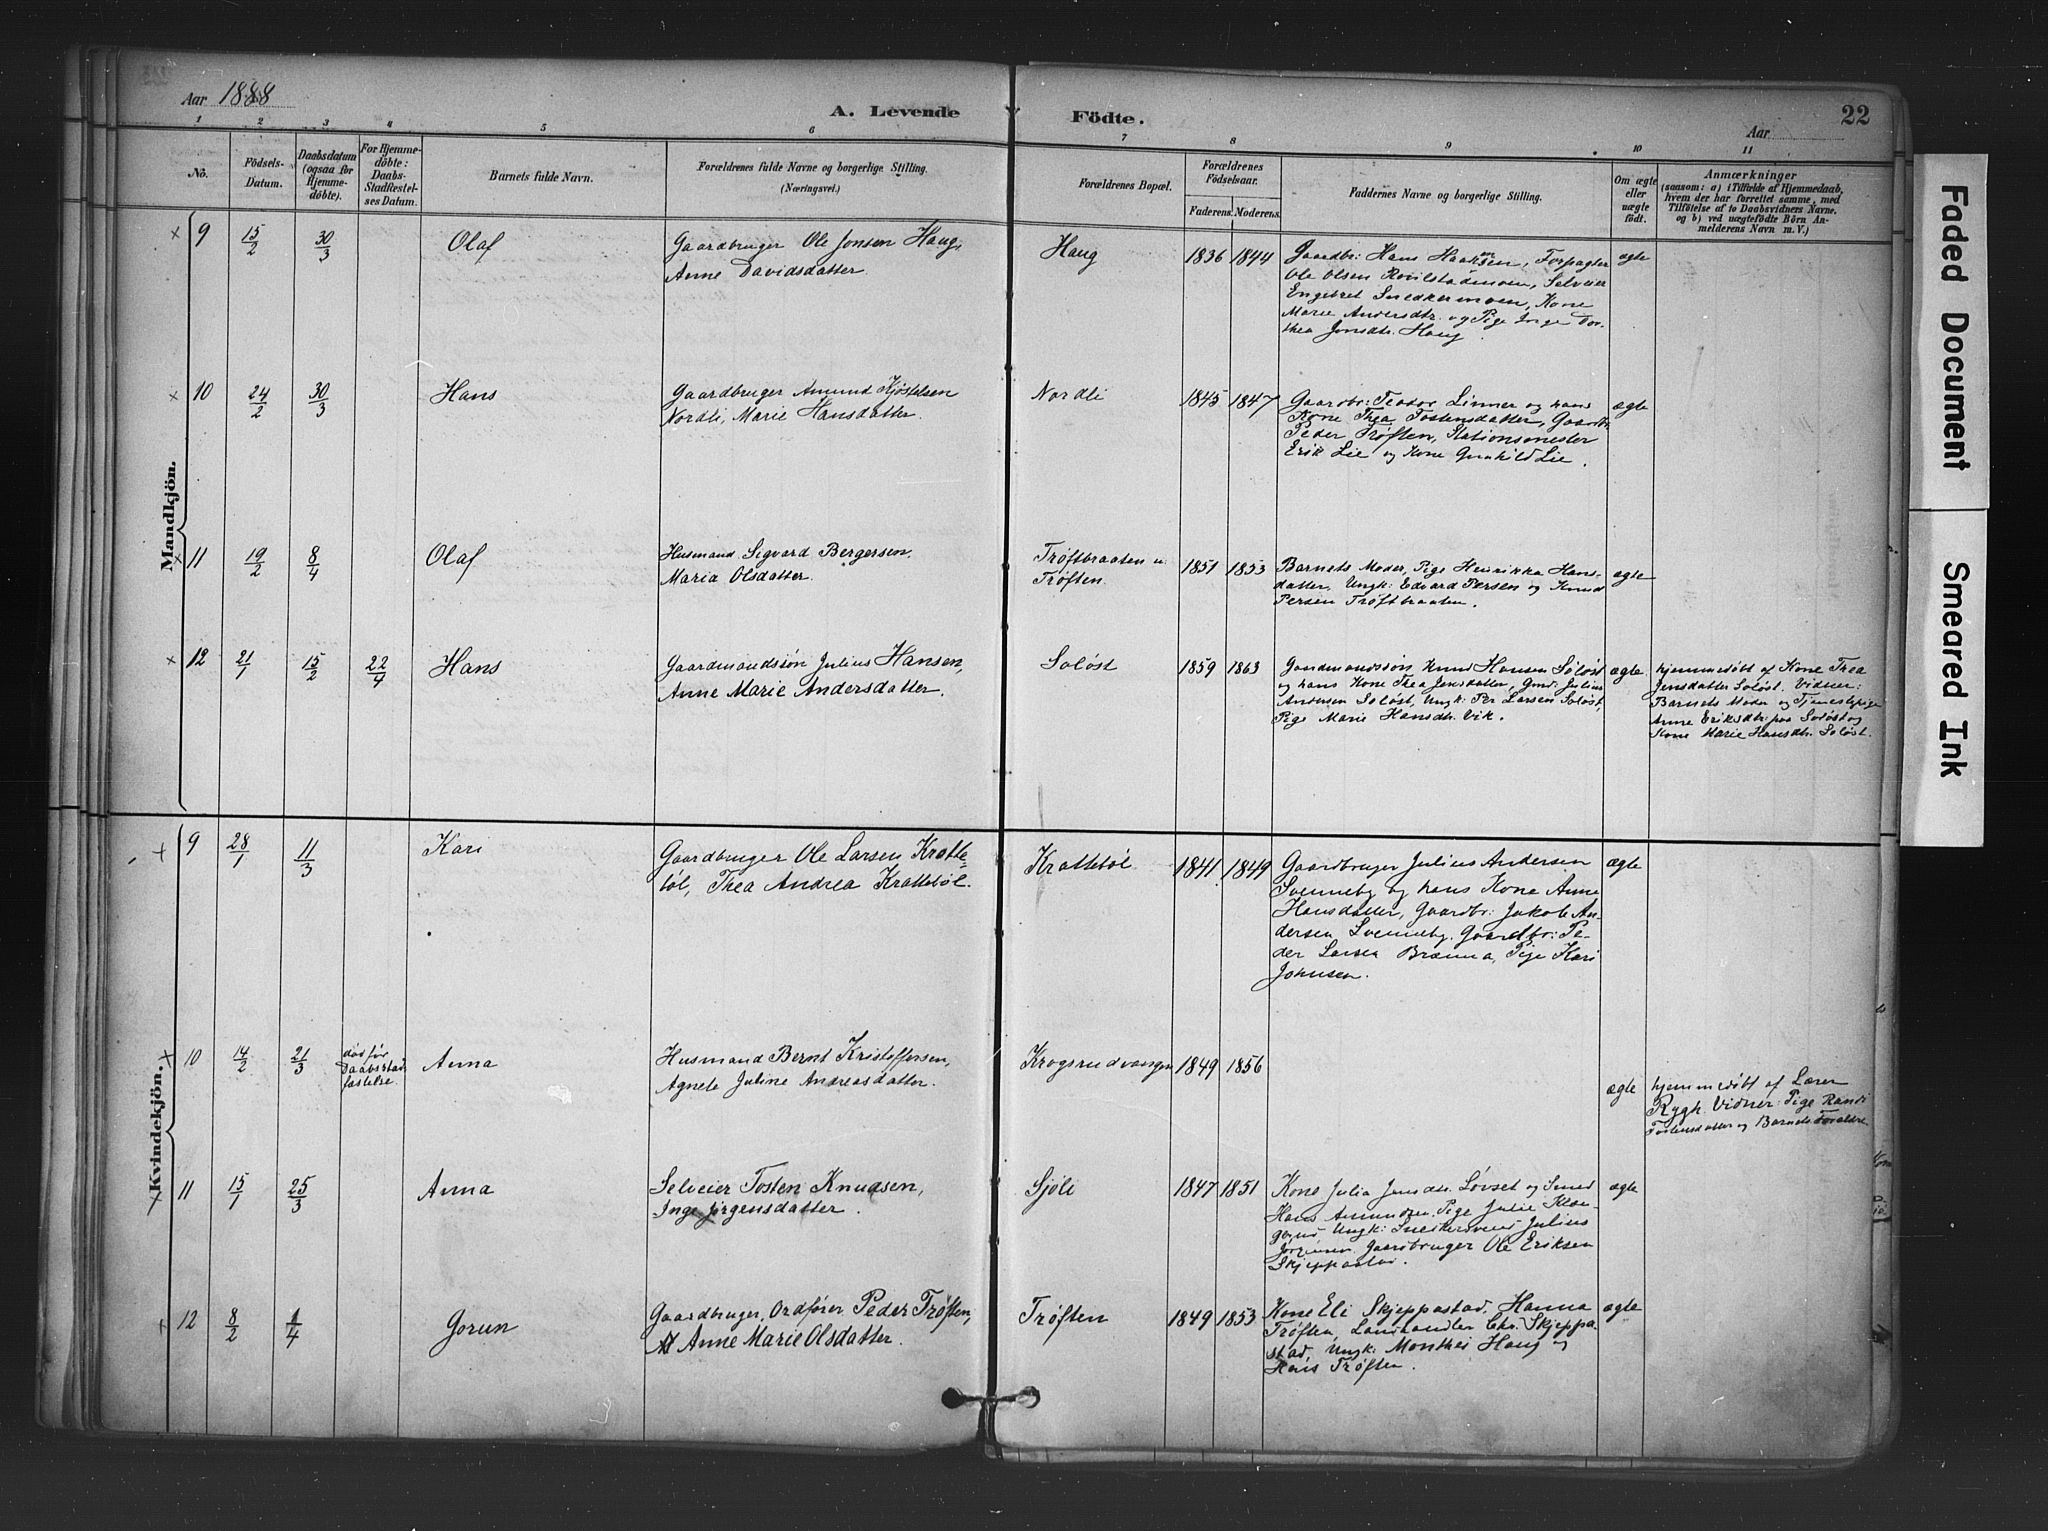 Aar 1888
A. Levende Födte.
22
Aar
1 2 3 4 5 6 7 8 9 10 11
No.
Födsels-Datum.
Daabsdatum (ogsaa for Hjemmedöbte).
For Hjemmedöbte: Daabs-Stadfæstelses Datum.
Barnets fulde Navn.
Forældrenes fulde Navne og borgerlige Stilling.
(Næringsvei.)
Forældrenes Bopæl.
Forældrenes Födselsaar.
Faderens. Moderens.
Faddernes Navne og borgerlige Stilling.
Om ægte eller uægte födt.
Anmærkninger
(saasom: a) i Tilfælde af Hjemmedaab,
hvem der har forrettet samme, med
Tilföielse af to Daabsvidners Navne.
og b) ved uægtefödte Börn An-
melderens Navn m. V.)
Mandkjön.
× 9 15/2 30/3 Olaf
Gaardbruger Ole Jonsen Haug,
Anne Davidsdatter.
Haug 1836 1844
Gaardbr: Hans Haaksen, Forpagter
Ole Olsen, Selveier
Engebret Snedkermoen, Kone
Marie Andersdtr. og Pige Inge Dor-
thea Jonsdtr. Haug.
ægte
× 10 24/2 30/3 Hans
Gaardbruger Amund Kjöstelsen
Nordli, Marie Hansdatter.
Nordli 1845 1847
Gaardbr: Teodor Linner og hans
Kone Thea Tostensdatter, Gaardbr.
Peder Trøften, Stationsmester
Erik Lie og Kone Gunhild Lie.
ægte
× 11 19/2 8/4 Olaf
Husmand Sigvard Bergersen,
Maria Olsdatter.
Trøftbraaten u.
Trøften.
1851 1853
Barnets Moder, Pige Henrikka Hans-
datter, Ungk: Edvard Persen og Knud
Persen Trøftbraaten.
ægte
× 12 21/1 15/2 22/4 Hans
Gaardmandssøn Julius Hansen,
Anne Marie Andersdatter.
Soløst 1859 1863
Gaardmandssøn Knud Hansen Soløst
og hans Kone Thea Jensdatter, Gmd: Julius
Andersen Soløst, Ungk: Per Larsen Soløst,
Pige Marie Hansdtr. Vik.
ægte
hjemmedøbt af Kone Thea
Jensdatter Soløst. Vidner:
Barnets Moder og Tjenestepige
Anne Eriksdtr: paa Soløst og
Kone Marie Hansdtr. Soløst.
Kvindekjön.
× 9 28/1 11/3 Kari
Gaardbruger Ole Larsen Kratte-
bøl, Thea Andrea Krattebøl.
Krattebøl 1841 1849
Gaardbruger Julius Andersen
Svenneby og hans Kone Anne
Hansdatter, Gaardbr: Jakob An-
dersen Svenneby, Gaardbr: Pe-
der Larsen Brænna, Pige Kari
Johnsen.
ægte
× 10 14/2 21/3
død før
Daabsstad-
fæstelse.
Anna
Husmand Bernt Kristoffersen,
Agnete Juline Andreasdatter.
Krogsrudvangen 1849 1856
ægte
hjemmedøbt af Lærer
Rygh. Vidner: Pige Randi
Tostensdatter og Barnets Forældre.
× 11 15/1 25/3 Anna
Selveier Tosten Knudsen,
Inge Jørgensdatter.
Sjøli 1847 1851
Kone Julia Jonsdtr. Løvset og Smed
Hans Amundsen, Pige Julie
Ungk: Julius
Jørgensen. Gaardbruger Ole Eriksen
Skjeppastad.
ægte
× 12 8/2 1/4 Gorun
Gaardbruger, Ordfører Peder Trøften,
Anne Marie Olsdatter.
Trøften 1849 1853
Kone Eli Skjeppastad, Hanna
Trøften, Landhandler Chr. Skjeppa-
stad, Ungk: Monthei Haug og
Hans Trøften.
ægte
Faded Document
Smeared Ink